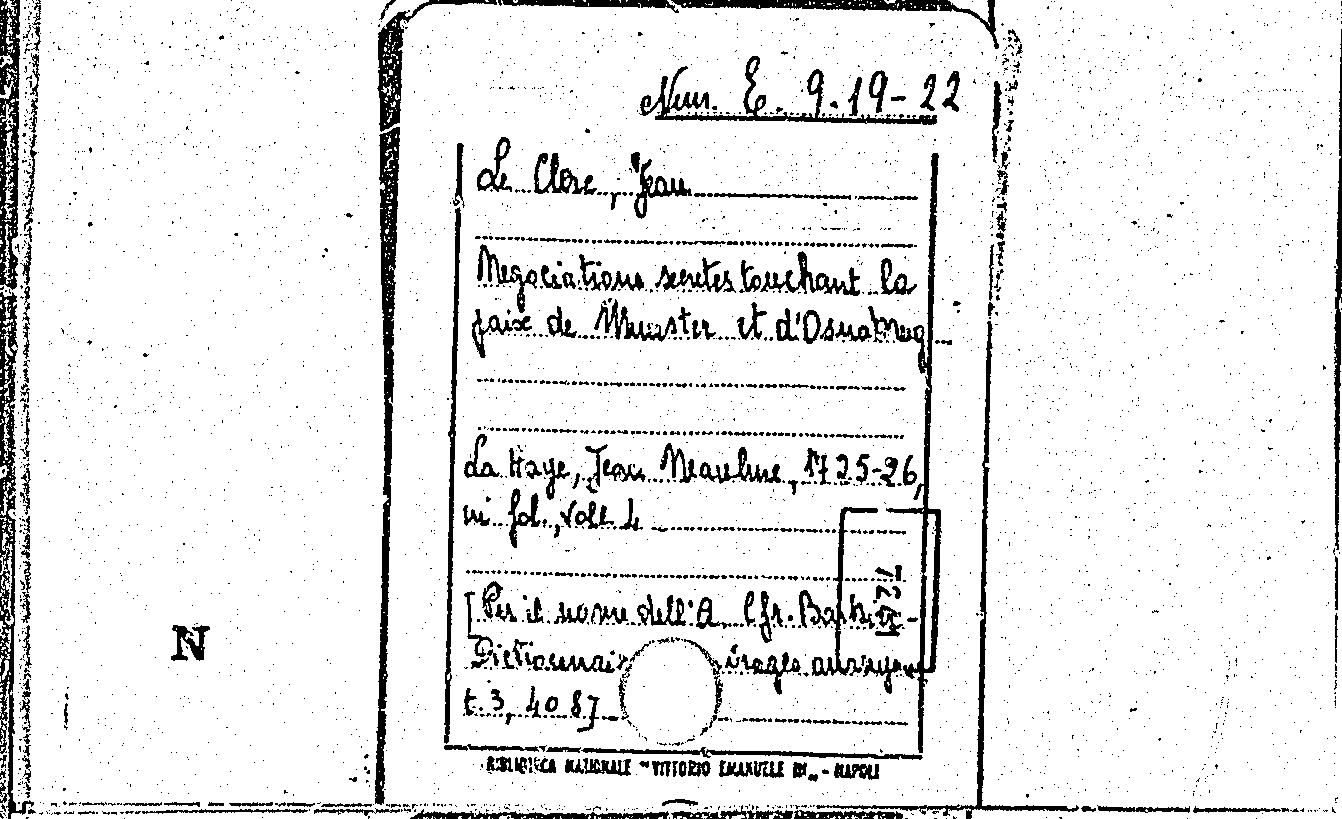 Nun. E. 9.19-22
Le Clerc, Jean
Negociations secretes touchant la
paix de Munster et d'Osnabrug
La Haye, Jean Neaulme, 1725-26,
in fol., voll. 4
7241
[Per il nome dell'A. Cfr. Barbier -
anonymes
t. 3, 408]
N
BIBLIOTECA NAZIONALE "VITTORIO EMANUELE III" - NAPOLI